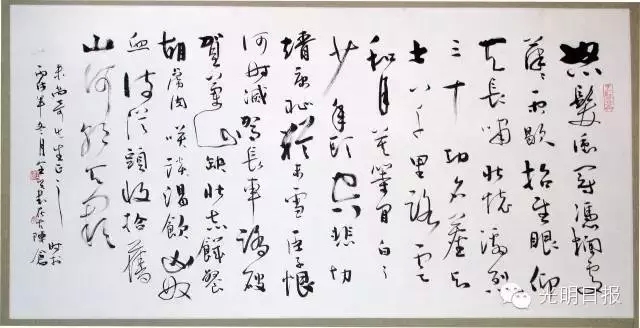 怒髮衝冠憑欄處
瀟瀟雨歇抬望眼仰
天長嘯壯懷激烈
三十功名塵與
土八千里路雲
和月莫等閒白了
少年頭空悲切
靖康恥猶未雪臣子恨
何時滅駕長車踏破
賀蘭山缺壯志飢餐
胡虜肉笑談渴飲匈奴
血待從頭收拾舊
山河朝天闕
光明日报